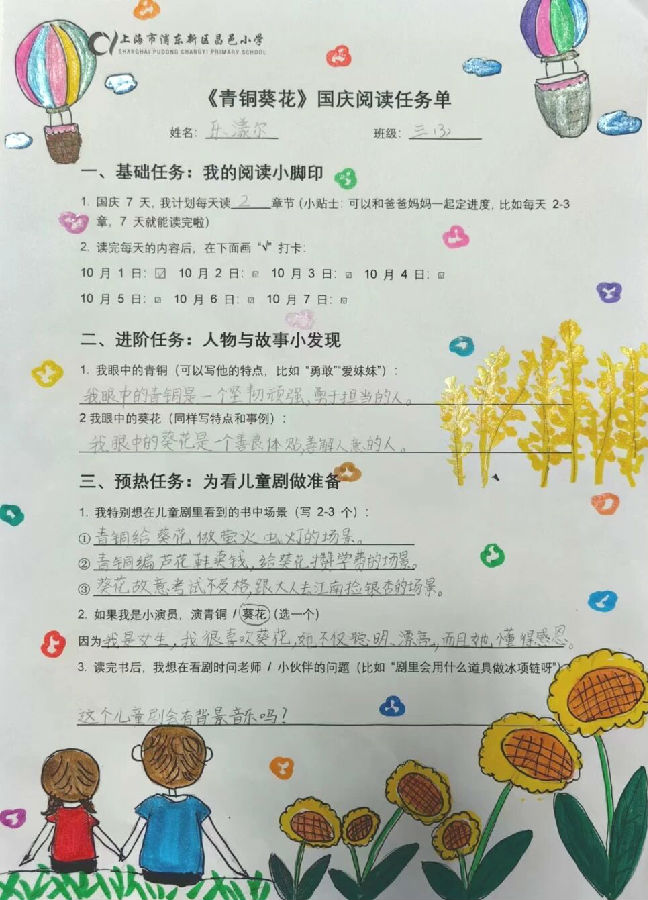 上海市浦东新区昌邑小学
SHANGHAI PUDONG CHANGYI PRIMARY SCHOOL
《青铜葵花》国庆阅读任务单
姓名：乐漾尔 班级：三(3)
一、基础任务：我的阅读小脚印
1. 国庆 7 天，我计划每天读 2 章节（小贴士：可以和爸爸妈妈一起定进度，比如每天 2-3
章，7 天就能读完啦）
2. 读完每天的内容后，在下面画 “√” 打卡：
10 月 1 日：☑ 10 月 2 日：☑ 10 月 3 日：☑ 10 月 4 日：☑
10 月 5 日：☑ 10 月 6 日：☑ 10 月 7 日：☑
二、进阶任务：人物与故事小发现
1. 我眼中的青铜（可以写他的特点，比如 “勇敢”“爱妹妹”）：
我眼中的青铜是一个坚韧顽强、勇于担当的人。
2 我眼中的葵花（同样写特点和事例）：
我眼中的葵花是一个善良体贴,善解人意的人。
三、预热任务：为看儿童剧做准备
1. 我特别想在儿童剧里看到的书中场景（写 2-3 个）：
① 青铜给葵花做萤火虫灯的场景。
② 青铜编芦花鞋卖钱，给葵花攒学费的场景。
③ 葵花故意考试不及格,跟大人去江南捡银杏的场景。
2. 如果我是小演员，演青铜 / 葵花（选一个）
因为我是女生，我很喜欢葵花,她不仅聪明、漂亮，而且她懂得感恩。
3. 读完书后，我想在看剧时问老师 / 小伙伴的问题（比如 “剧里会用什么道具做冰项链呀”
这个儿童剧会有背景音乐吗？